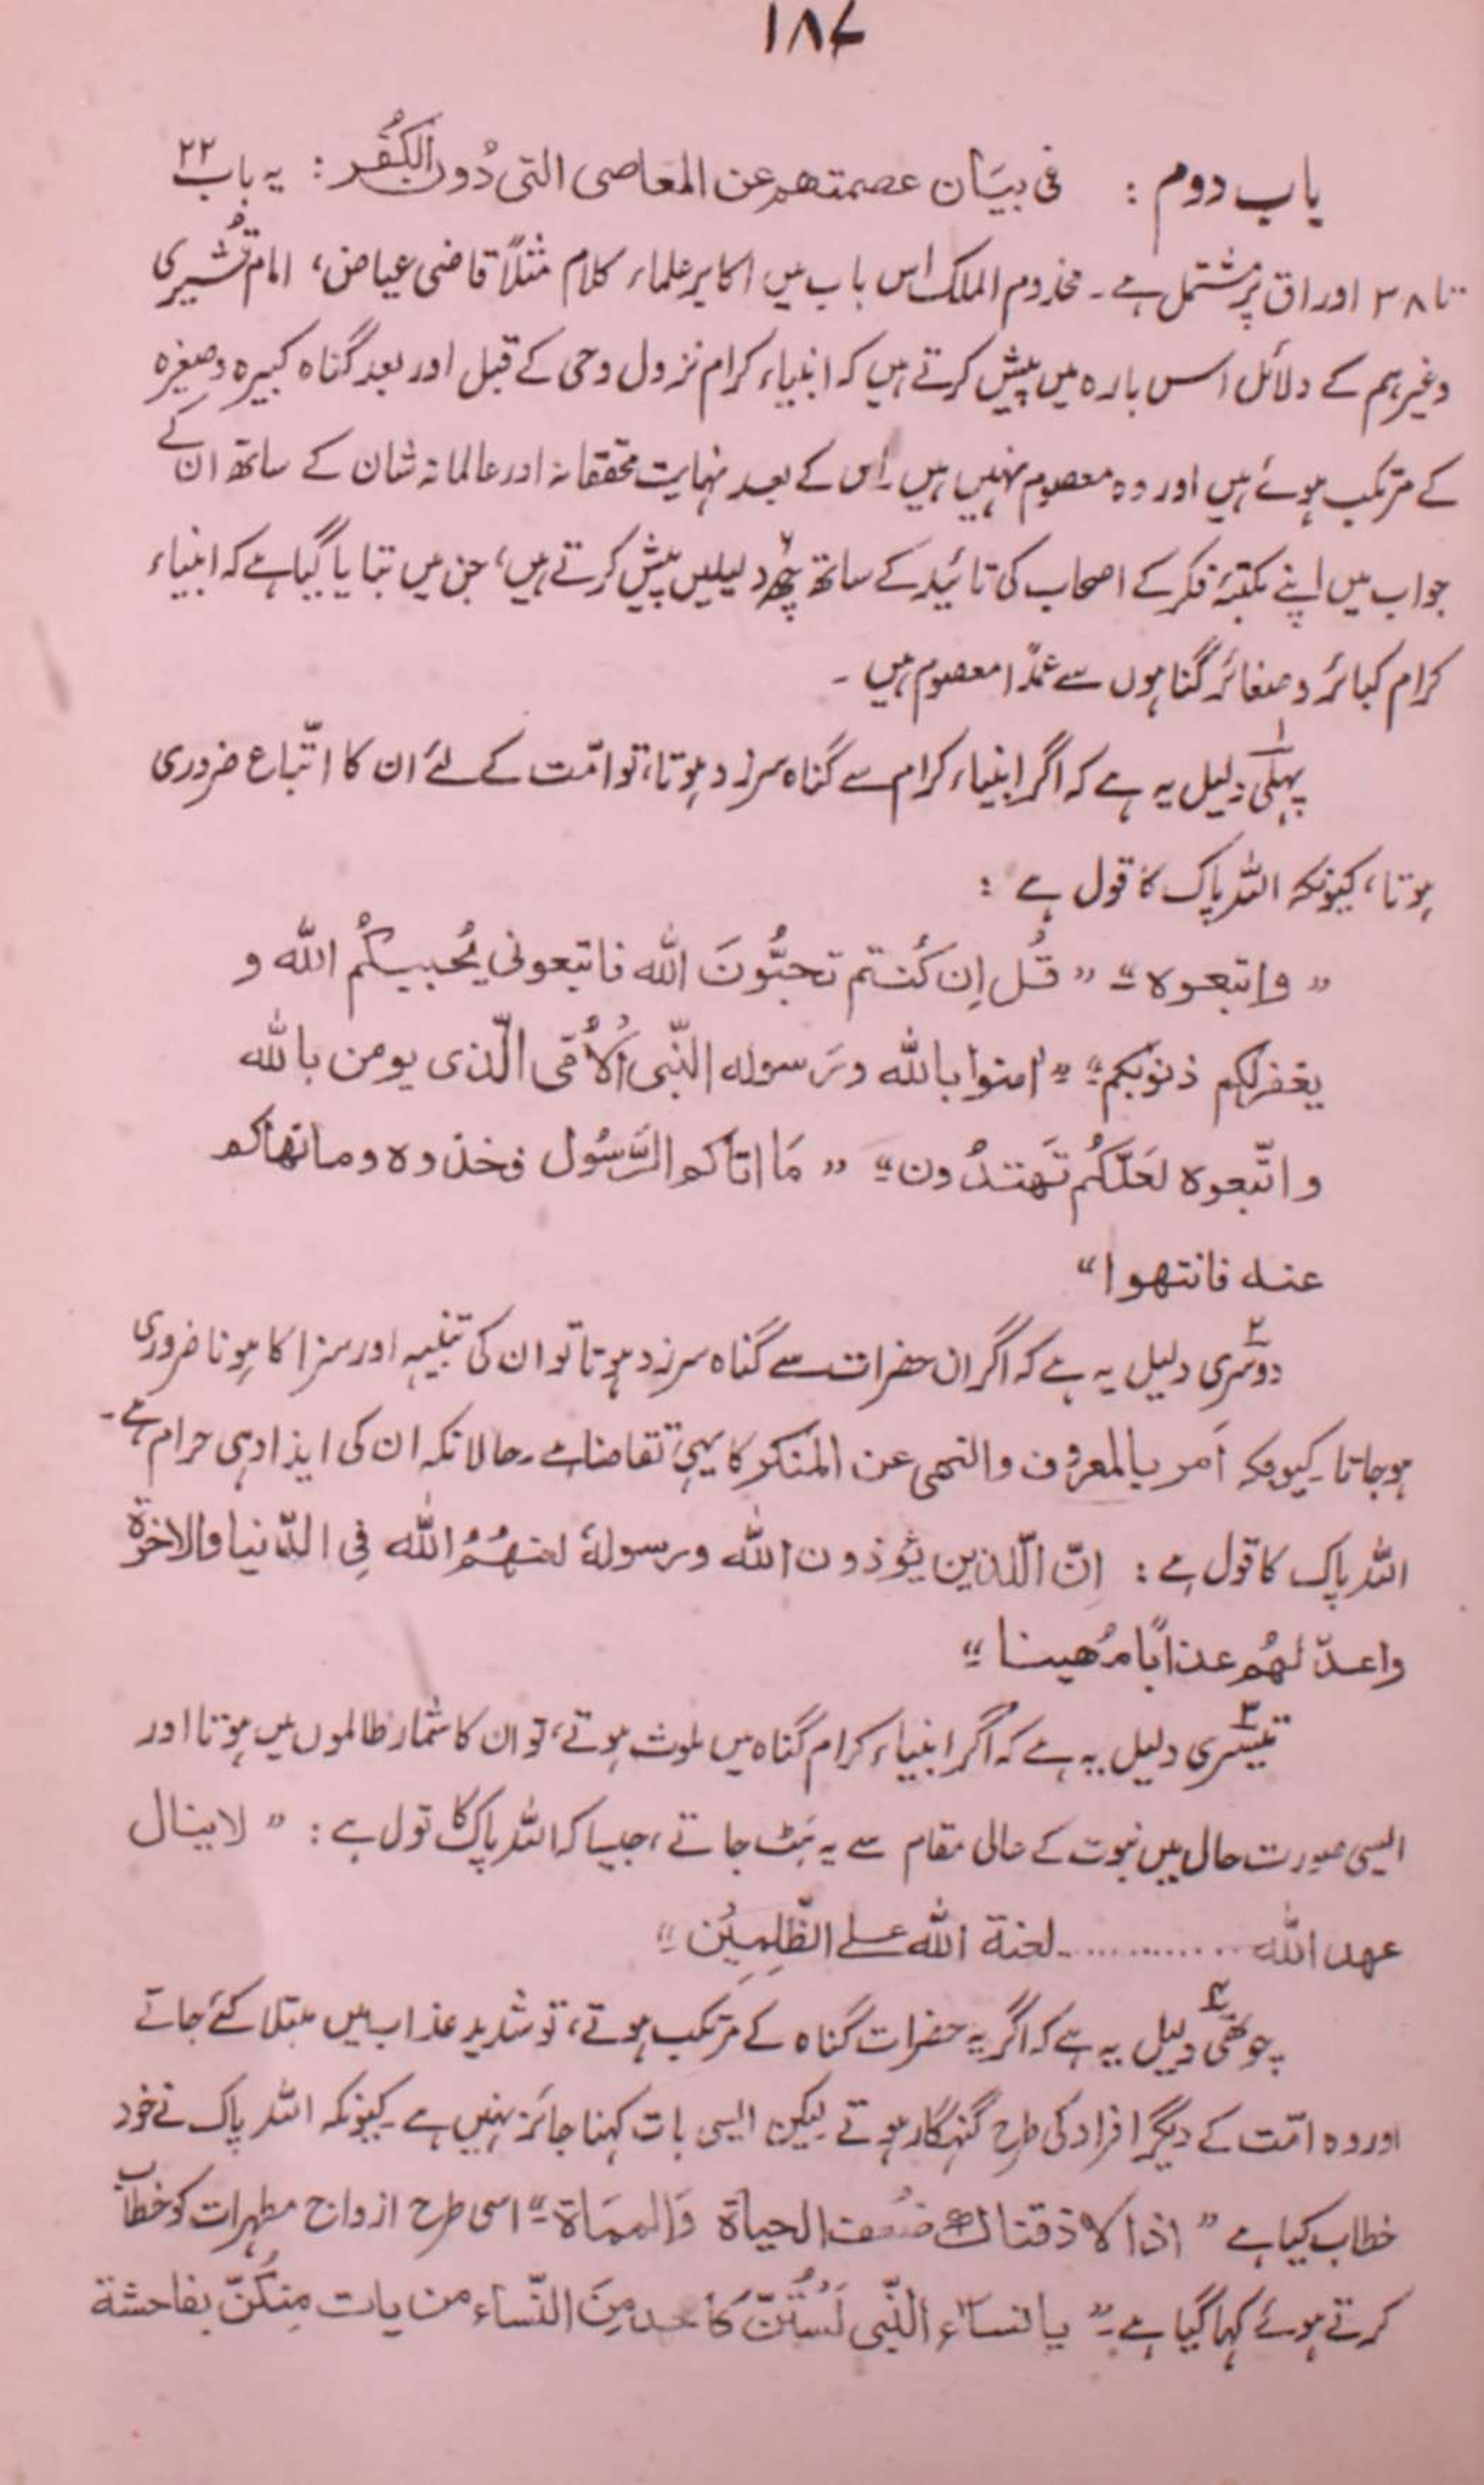 ۱۸۷
باب دوم : فی بیَان عصمتهم عن المعَاصی التی دُون الکُفُر : یہ باب ۲۲
تا ۳۸ اوراق پر مشتمل ہے۔ مخدوم الملک اس باب میں اکابر علماء کلام مثلاً قاضی عیاض، امام قُشیری
وغیرہم کے دلائل اس بارہ میں پیش کرتے ہیں کہ انبیاء کرام نزول وحی کے قبل اور بعد گناہ کبیرہ و صغیرہ
کے مرتکب ہوئے ہیں اور وہ معصوم نہیں ہیں۔ اس کے بعد نہایت محققانہ اور عالمانہ شان کے ساتھ ان کے
جواب میں اپنے مکتبۂ فکر کے اصحاب کی تائید کے ساتھ چھ ۶ دلیلیں پیش کرتے ہیں، جن میں بتایا گیا ہے کہ انبیاء
کرام کبائر و صغائر گناہوں سے عمدًا معصوم ہیں ۔
پہلی ۱ دلیل یہ ہے کہ اگر انبیاء کرام سے گناہ سرزد ہوتا، تو امّت کے لئے ان کا اتّباع ضروری
ہوتا، کیونکہ اللہ پاک کا قول ہے :
” واتبعوہ “ ” قُل اِن کُنتم تحبُّونَ الله فاتبعونی یُحببکُم الله و
یغفرلکم ذنوبکم “ ” امنوا بالله ورَسوله النّبی اُلاُمّی الّذی یومن بالله
واتّبعوہ لعَلّکُم تَهتدُون “ ” مَا اتاکم الرَّسُول فخذوہ ومانهاکم
عنه فانتهوا “
دوسری ۲ دلیل یہ ہے کہ اگر ان حضرات سے گناہ سرزد ہوتا تو ان کی تنبیہ اور سزا کا ہونا ضروری
ہوجاتا۔ کیونکہ اَمر بالمعرُوف والنهی عن المُنکر کا یہی تقاضا ہے۔ حالانکہ ان کی ایذا دہی حرام ہے۔
اللہ پاک کا قول ہے : اِنّ الّذین یُؤذون الله ورسولهٗ لعنهُمُ الله فِی الدّنیا والاخرة
واعدّ لهُم عذابًا مُهینا “
تیسری ۳ دلیل یہ ہے کہ اگر انبیاء کرام گناہ میں ملوث ہوتے، تو ان کا شمار ظالموں میں ہوتا اور
ایسی صورت حال میں نبوت کے عالی مقام سے یہ ہَٹ جاتے، جیسا کہ اللہ پاک کا قول ہے : ” لاینال
عهد الله ............. لعنة الله علے الظّلِمِیُن “
چوتھی ۴ دلیل یہ ہے کہ اگر یہ حضرات گناہ کے مرتکب ہوتے، تو شدید عذاب میں مبتلا کئے جاتے
اور وہ امّت کے دیگر افراد کی طرح گنہگار ہوتے لیکن ایسی بات کہنا جائز نہیں ہے۔ کیونکہ اللہ پاک نے خود
خطاب کیا ہے ” اذا لا ذقناك ضعف الحیاة وَالممَاة “ اسی طرح ازواج مطہرات کو خطاب
کرتے ہوئے کہا گیا ہے۔ ” یا نساء النّبی لَسُتُنّ کَاَحد مِنَ النّساء من یات مِنکُنّ بفاحشة